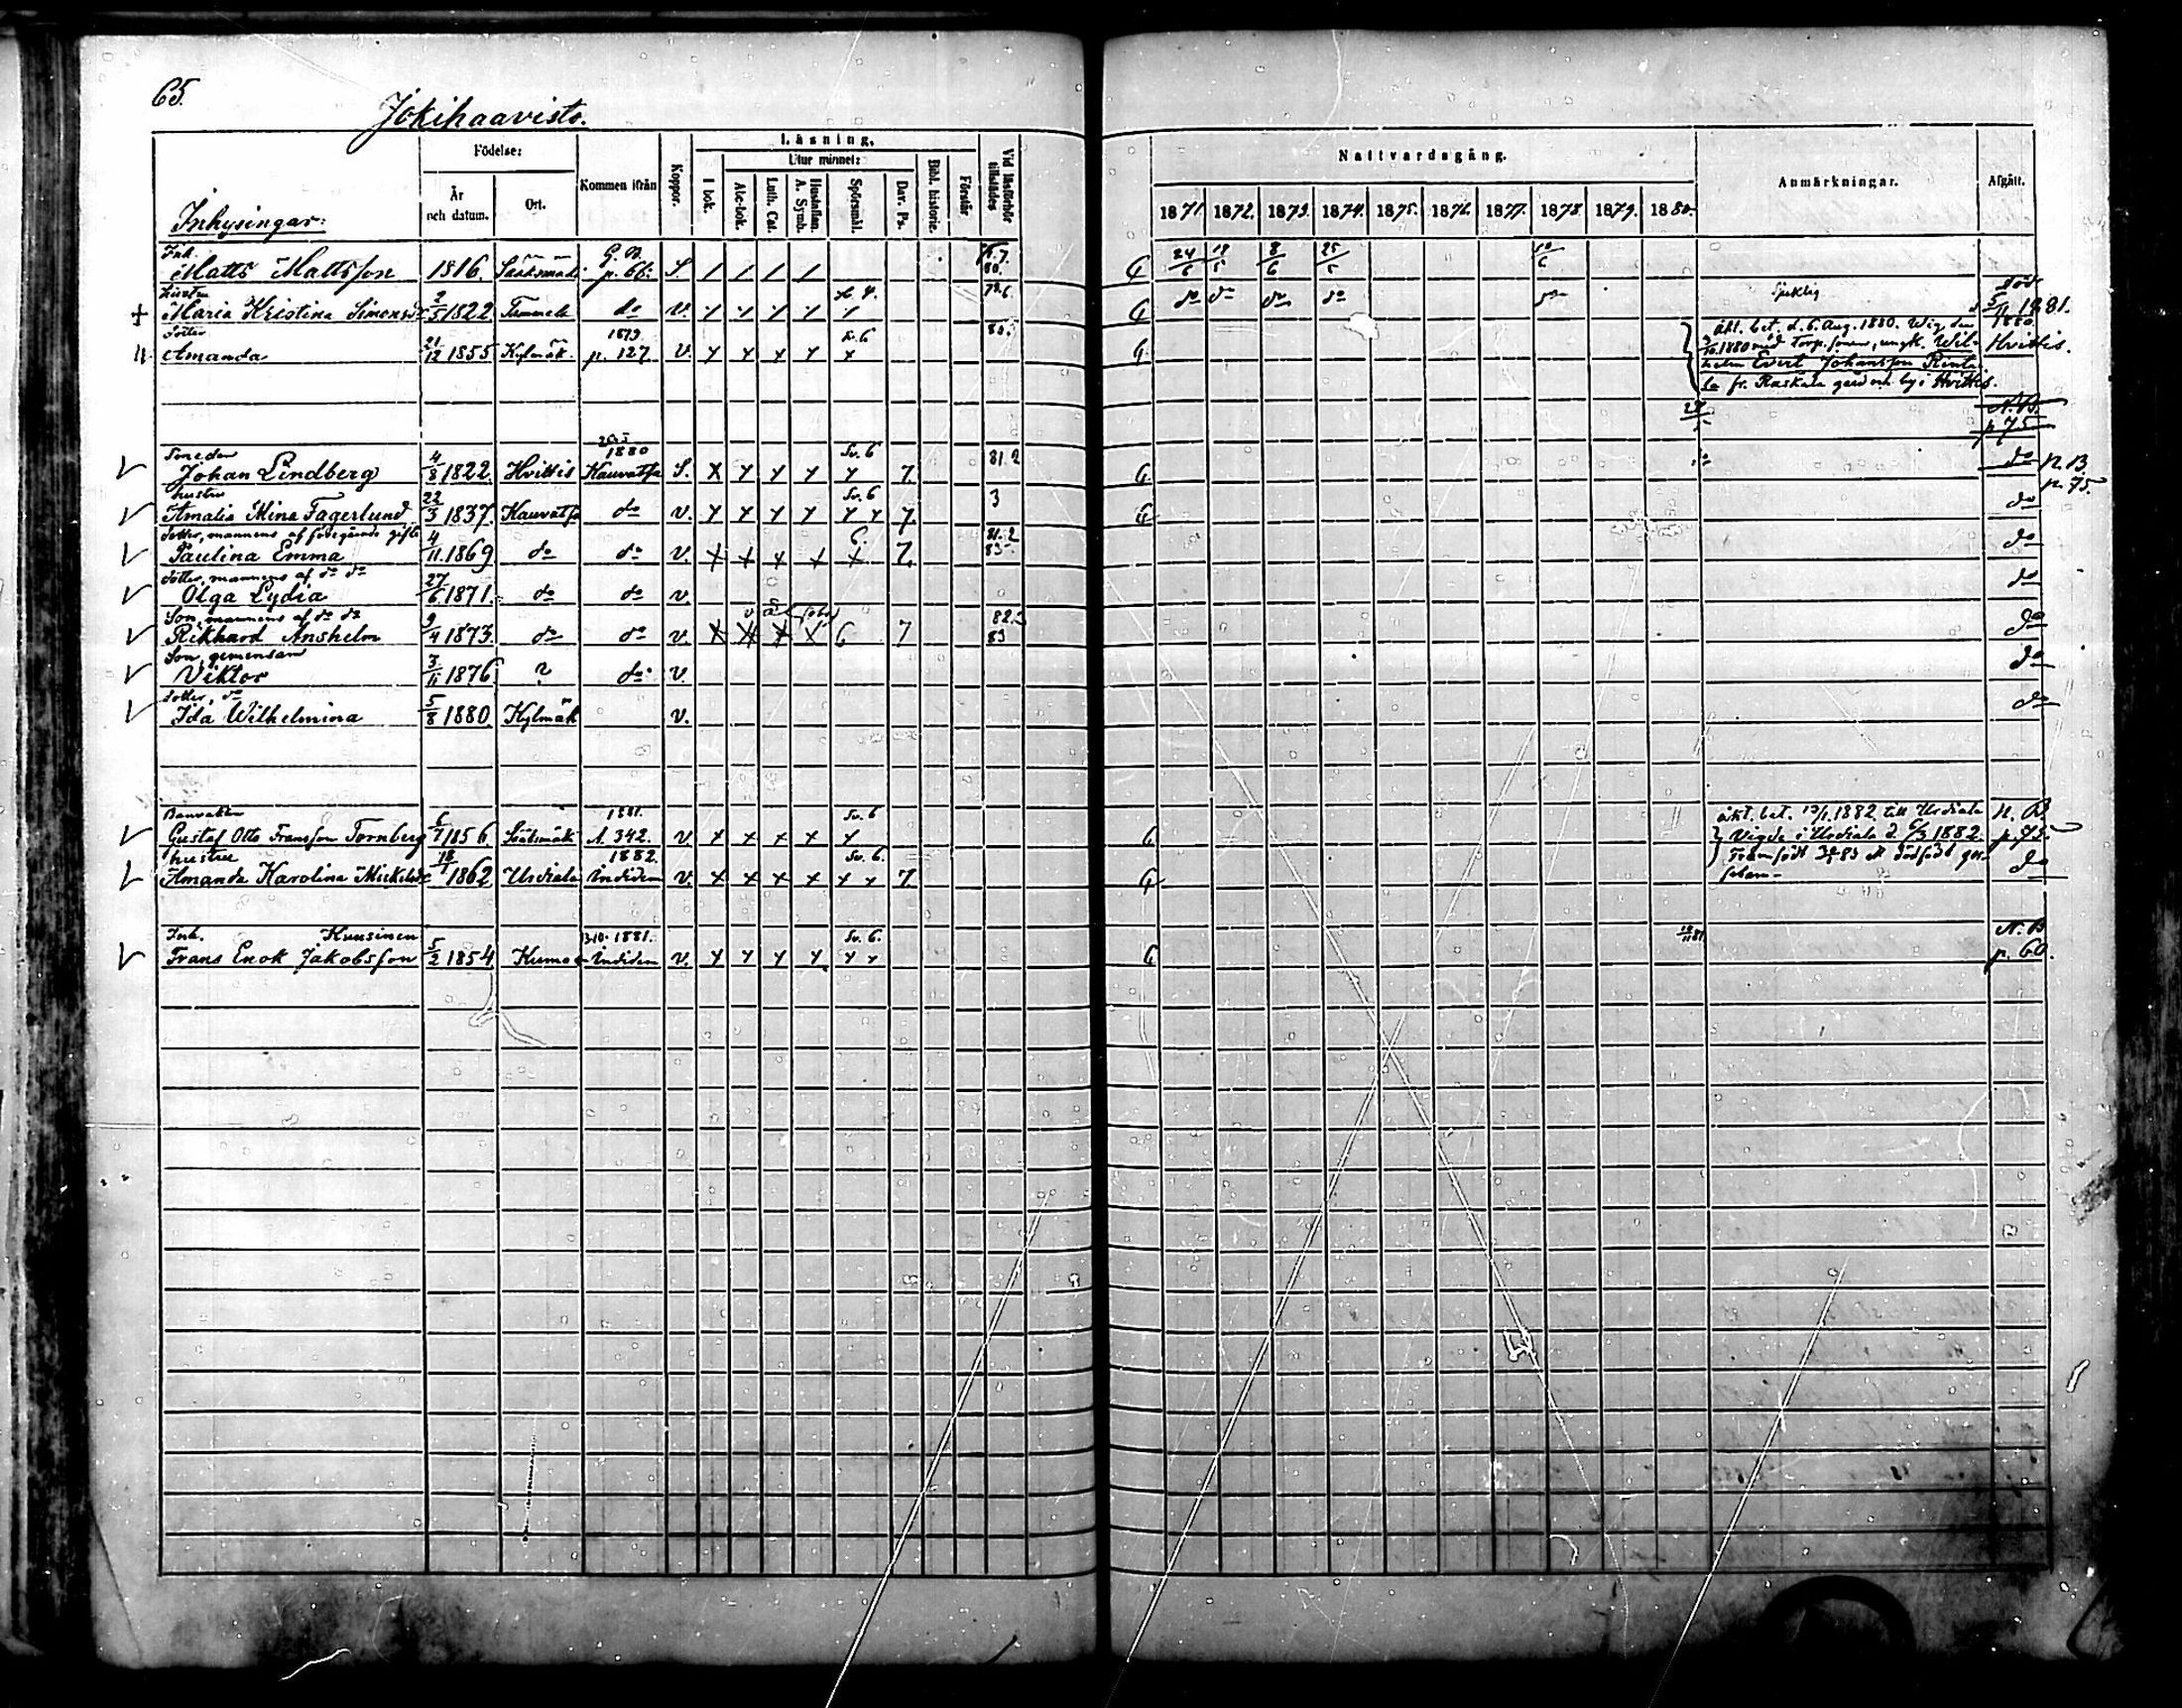 65.
Jokihaavisto.
Födelse: Läsning. Nattvardsgång.
Utur minnet:
År och datum. Ort. Kommen ifrån Koppor. I bok. Abc-bok. Luth. Cat. Hustaflan. A. Symb. Spörsmål. Dav. Ps. Bibl. historie. Förstår Vid läsförhör tillstädes Anmärkningar. Afgått.
1871 1872. 1873. 1874. 1875. 1876. 1877. 1878. 1879. 1880.
Inhysingar:
Inh. G. B.
Matts Mattsson 1816. Sääksmäki p. 66: S. / / / / / 80. G 24/6 8/6
hustru död
+ Maria Kristina Simonsd. 2/5 1822 do V. G do do do do Sjuklig 5/11 1881.
Dotter 1879 Sv. 6 80. äkt. bet. d. 6. Aug. 1880. Wig den 1880
Amanda 21/12 1855 Kylmäk. p. 127. V. G. /10. 1880 med Torp. sonen, ungk. Wil- Hvittis.
helm Evert Johansson Rinta
la fr. Raskala gård om by i Hvittis.
N. B.
p 75
Smeden 1880 Sv. 6 81. 2
Johan Lindberg 4/8 1822. Hvittis Kauvatsa S. x 7. G. do n. B. p. 75
hustru Sv. 6 3
Amalia Mina Fagerlund 22/3 1837. Kauvatsa do V. 7. G do
Dotter, mannens af föregående gifte 6. 81. 2
Paulina Emma 4/11. 1869 do do V. 7. 83 do
Dotter, mannens af do do
Olga Lydia 27/6 1871. do do V. do
Son, mannens af do do 82.
Rikhard Anshelm 9/4 1873. do do V. 6 7 83 do
Son, gemensam
Viktor 3/11 1876 ? do V. do
Dotter, do
Ida Wilhelmina 5/8 1880 Kylmäk V. do
Banvakten 1881. Sv. 6 äkt. bet. 1882 till Urdiala n. B
Gustaf Otto Fransson Tornberg 6/7 1856 Sääksmäk A. 342. V. G Vigde i Urdiala d. 6/3 1882. p. 75
hustru 1882. Sv. 6.
Amanda Karolina Mickelsd. 1862 Urdiala Indiden V. 7 G do
Inh. Kuusinen 1881. Sv. 6. N. B
Frans Enok Jakobsson 5/2 1854 Kumo Indiden V. G p. 60.